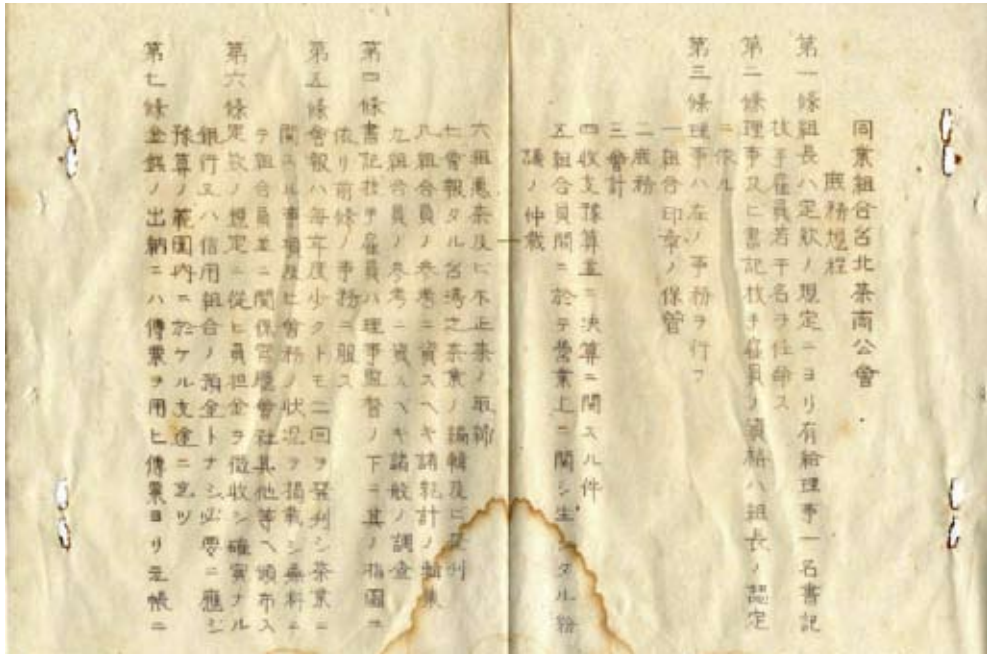 同業組合台北茶商公會
庶務規程
第一條組長ハ定欵ノ規定ニヨリ有給理事一名書記
技手雇員若干名ヲ任命ス
第二條理事又ヒ書記技手雇員ノ資格ハ組長ノ認定
ニ依ル
第三條理事ハ左ノ事務ヲ行フ
一組合印章ノ保管
二庶務
三會計
四收支豫算並ニ決算ニ關スル件
五組合員間ニ於テ營業上ニ關シ生シタル紛
議ノ仲裁
六粗悪茶及ヒ不正茶ノ取締
七會報タル台湾之茶業ノ編輯及ヒ發刋
八組合員ノ参考ニ資スヘキ諸統計ノ編
九組合員ノ参考ニ資スヘキ諸般ノ調査
第四條書記技手雇員ハ理事監督ノ下ニ其ノ指圖ニ
依リ前條ノ事務ニ服ス
第五條會報ハ毎年度少クトモ二回ヲ發刋シ茶業ニ
關スル事項及ヒ會務ノ状况ヲ揭載シ無料ニ
テ組合員並ニ關係官廳會社其他等ヘ頒布ス
第六條定欵ノ規定ニ從ヒ負担金ヲ徴收シ確實ナル
銀行又ハ信用組合ノ預金トナシ必要ニ應シ
豫算ノ範囲内ニ於ケル支途ニ充ツ
第七條金銭ノ出納ニハ傳票ヲ用ヒ傳票ヨリ元帳ニ